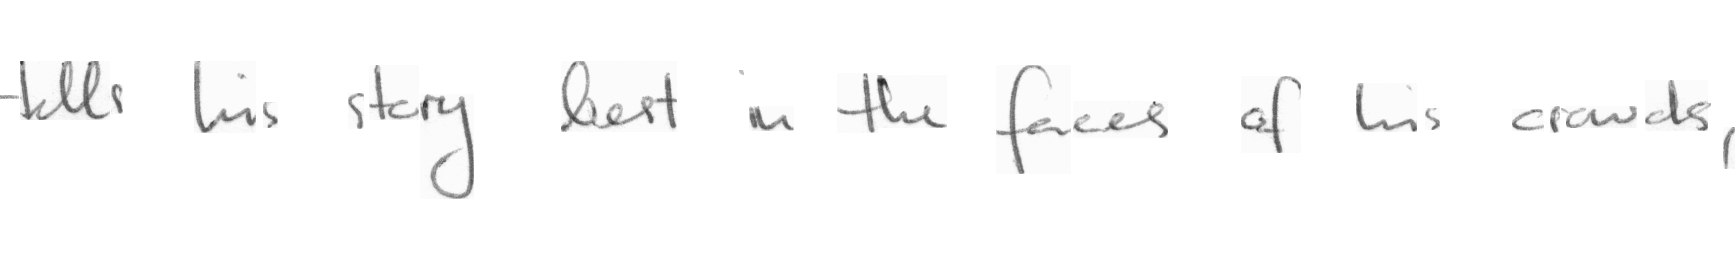 tells his story best in the faces of his crowds,